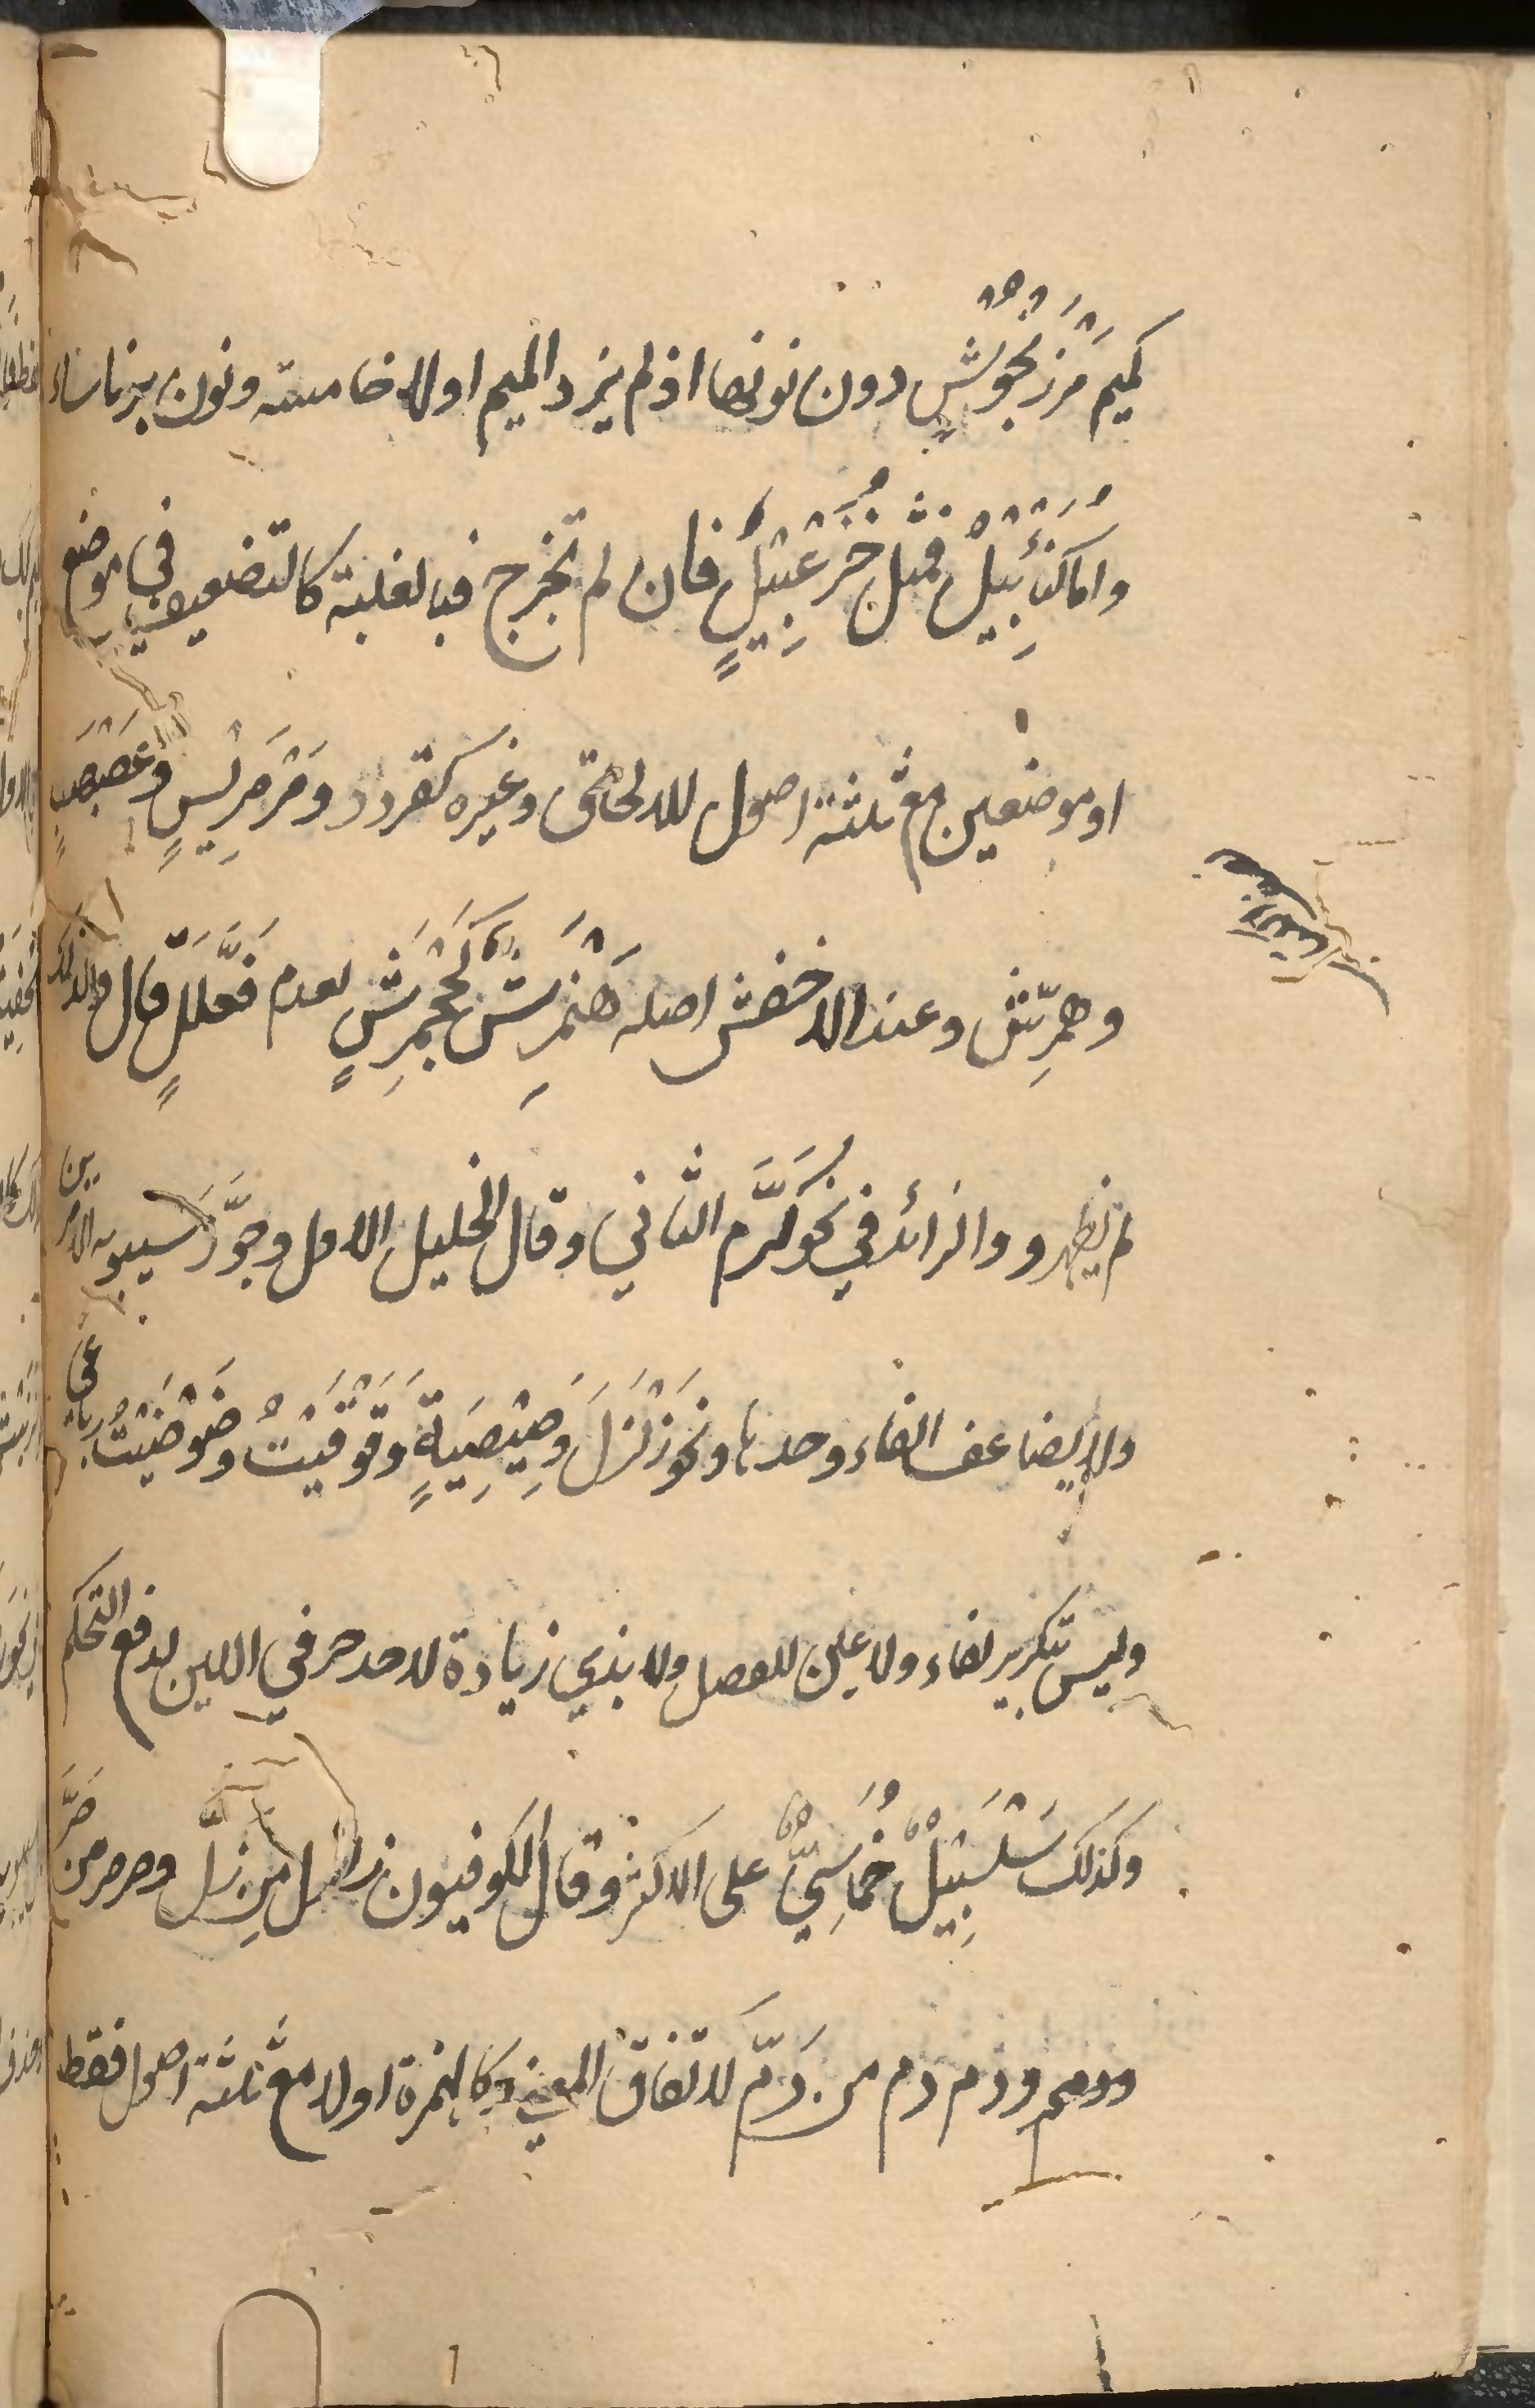 كميم مَرْزَنْجُوْشٍ دون نونها اذ لم يزد الميم اولا خامسة ونون برناساء
واما كُنَأْبِيْلٌ فمثل خُزَعْبِيْلٍ فان لم تخرج فبالغلبة كالتضعيف في موضع
او موضعين مع ثلثة اصول للالحاق وغيره كقردد ومَرْمَرِيْسٍ وعَصَبْصَبٍ
وهمّرِش وعند الاخفش اصله هَنْمَرِشٌ كَجَحْمَرِشٍ لعدم فَعَّلِلٍ قال ولذلك
لم يظهرو والزائد في نحو كَرَّم الثاني وقال الخليل الاول وجوَّزَ سيبويه الامرين
ولا يضاعف الفاء وحدها ونحو زَلْزَلَ وصِيْصِيَةٍ وقَوْقَيْتُ وضَوْضَيْتُ رباعي
وليس تكرير لفاء ولا عين للفصل ولا بذي زيادة لاحد حرفي اللين لدفع التحكم
وكذلك سَلْسَبِيْلٌ خُمَاسِيٌّ على الاكثر وقال الكوفيون زلزل من زلَّ وصرصر من صَرَّ
ودمدم من دَمَّ لاتفاق المعنى وكالهمزة اولا مع ثلثة اصول فقط